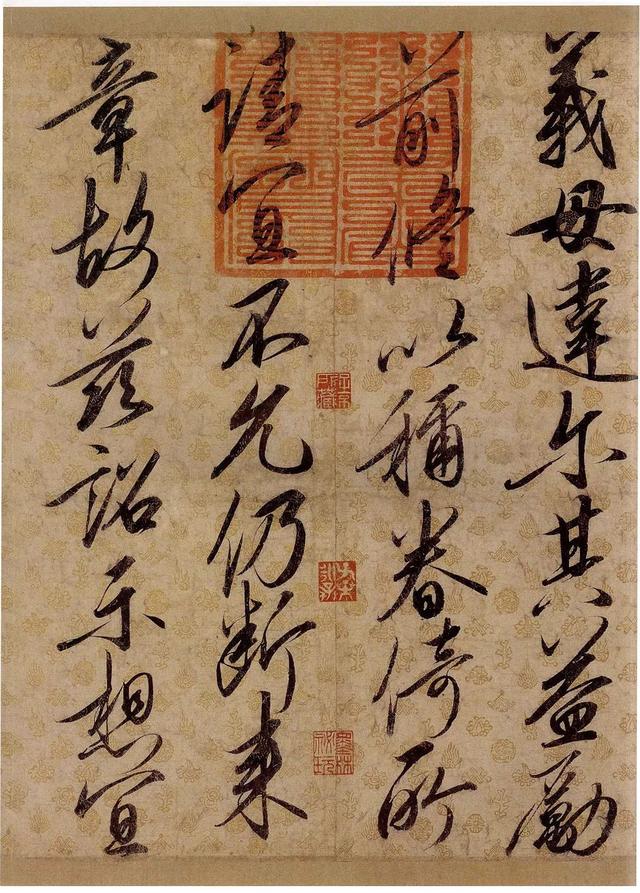 義毋違尒其益勵
前修以稱眷倚所
請宜不允仍斷来
章故茲詔示想宜